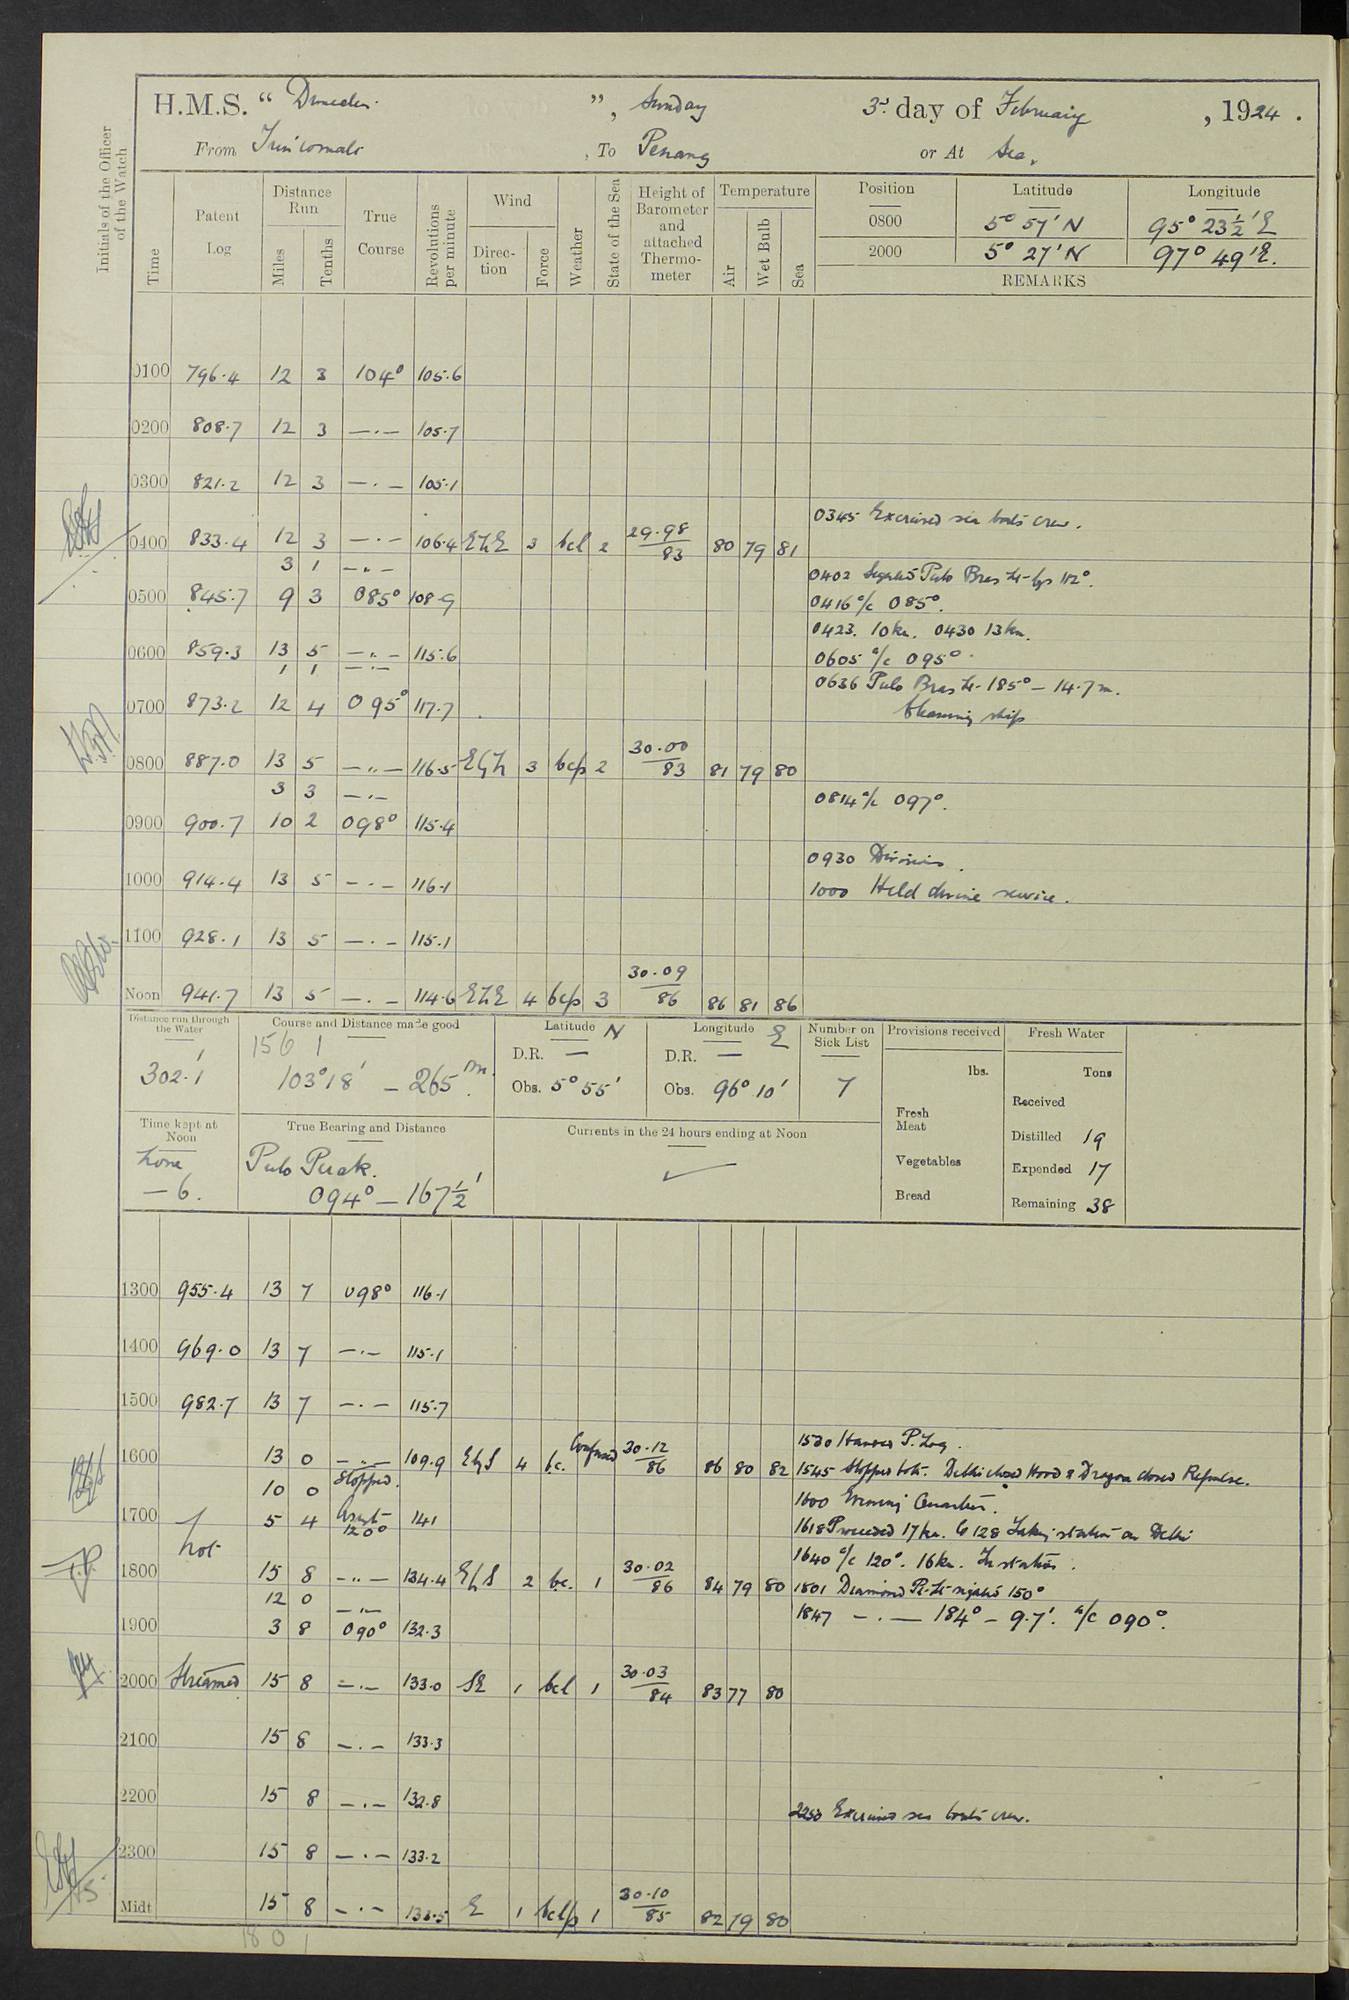 H.M.S. “ Dunedin. ”, Sunday 3rd day of February, 1924.
From Trincomalo, To Penang or At Sea.
Initials of the Officer of the Watch
Time Patent Log Distance Run Miles Tenths True Course Revolutions per minute Wind Direction Force Weather State of the Sea Height of Barometer and attached Thermometer Temperature Air Wet Bulb Sea
Position Latitude Longitude
0800 5° 57' N 95° 23½' E
2000 5° 27' N 97° 49' E.
REMARKS
0100 796.4 12 3 104° 105.6
0200 808.7 12 3 —.— 105.7
0300 821.2 12 3 —.— 105.1
0345 Exercised sea boats crew.
0400 833.4 12 3 —.— 106.4 ENE 3 bcl 2 29.98 83 80 79 81
3 1 —.—
0402 Sighted Pulo Bras Lt- brg 112°.
0500 845.7 9 3 085° 108.9
0416 a/c 085°.
0423. 10 kn. 0430 13 kn.
0600 859.3 13 5 —.— 115.6
0605 a/c 095°.
1 1 —.—
0636 Pulo Bras Lt- 185° — 14.7 m.
0700 873.2 12 4 095° 117.7
Cleaning ship
0800 887.0 13 5 —..— 116.5 EbN 3 bcp 2 30.00 83 81 79 80
3 3 —.—
0814 a/c 097°.
0900 900.7 10 2 098° 115.4
0930 Divisions.
1000 914.4 13 5 —.— 116.1
1000 Held divine service.
1100 928.1 13 5 —.— 115.1
Noon 941.7 13 5 —.— 114.6 ENE 4 bcp 3 30.09 86 86 81 86
Distance run through the Water 302.1'
Course and Distance made good
156 1
103° 18' — 265 m.
Latitude N
D.R. —
Obs. 5° 55'
Longitude E
D.R. —
Obs. 96° 10'
Number on Sick List 7
Provisions received
lbs.
Fresh Meat
Vegetables
Bread
Fresh Water
Tons
Received
Distilled 19
Expended 17
Remaining 38
Time kept at Noon
Zone
— 6.
True Bearing and Distance
Pulo Perak.
094° — 167½'
Currents in the 24 hours ending at Noon
1300 955.4 13 7 098° 116.1
1400 969.0 13 7 —.— 115.1
1500 982.7 13 7 —.— 115.7
1530 Handed P. Log.
1600 13 0 —..— 109.9 EbS 4 bc. Confused 30.12 86 86 80 82
1545 Stopped both. Delhi closed Hood & Dragon closed Repulse.
10 0 Stopped.
1600 Evening Quarters.
1700 5 4 120° 141
1618 Proceeded 17 kn. Co 128 Taking station on Delhi
not
1640 a/c 120°. 16 kn. In station.
1800 15 8 —..— 134.4 EbS 2 bc. 1 30.02 86 84 79 80
1801 Diamond Pt- Lt- sighted 150°
12 0 —.—
1847 —.— 184° — 9.7'. a/c 090°.
1900 3 8 090° 132.3
2000 Streamed 15 8 —.— 133.0 SE 1 bcl 1 30.03 84 83 77 80
2100 15 8 —.— 133.3
2200 15 8 —.— 132.8
2250 Exercised sea boats crew.
2300 15 8 —.— 133.2
Midt 15 8 —.— 133.5 E 1 bclp 1 30.10 85 82 79 80
180 1